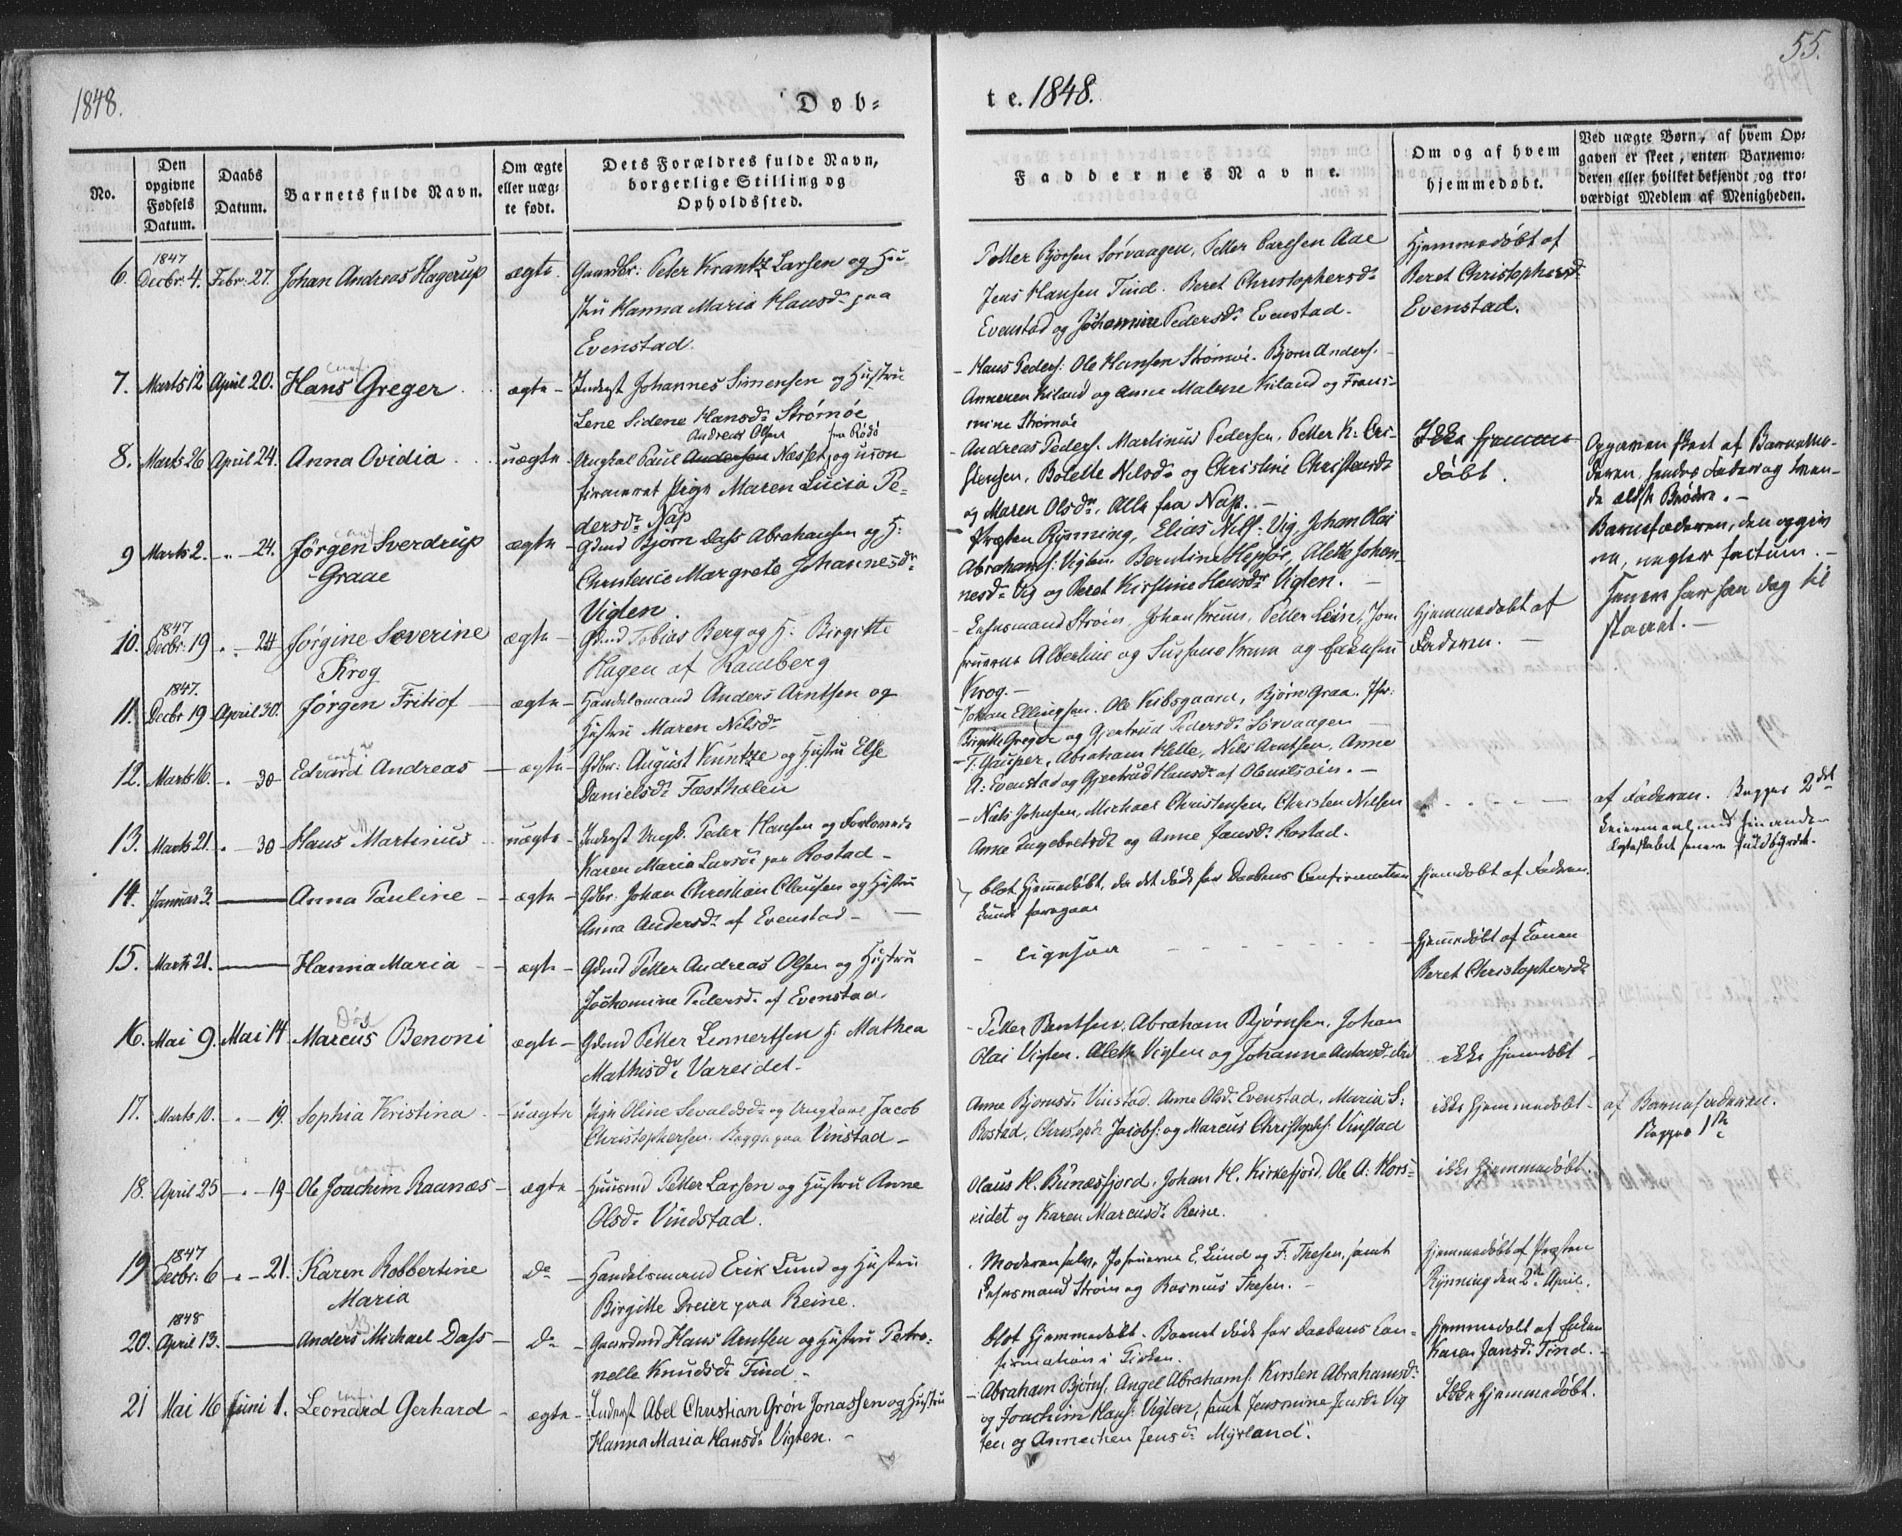 1848.
Døb-
te. 1848.
55.
No.
Den opgivne Fødsels Datum.
Daabs Datum.
Barnets fulde Navn.
Om ægte eller uægte født.
Dets Forældres fulde Navn, borgerlige Stilling og Opholdssted.
Faddernes Navne.
Om og af hvem hjemmedøbt.
Ved uægte Børn, af hvem Opgaven er skeet, enten Barnemoderen eller hvilket bekjendt og troværdigt Medlem af Menigheden.
6. 1847 Decbr: 4. Febr: 27. Johan Andreas Hagerup ægte. Gaardbr: Peter Krantz Larsen og Hu-
stru Hanna Maria Hansd: paa
Evenstad.
Petter Bjørsen Sørvaagen, Petter Carlsen Aae
Jens Hansen Tind. Beret Christophersd:
Evenstad og Johannine Pedersd: Evenstad.
Hjemmedøbt af
Beret Christophersd:
Evenstad.
7. Marts 12 April 20. Hans Greger ægte Inderst Johannes Simensen og Hustru
Lene Sidene Hansd: Strømøe
Hans Peders: Ole Hansen Strømøe. Bjørn Anders.
Kiland og Anne Malene Kiland og Fran-
mine Strømøe
8. Marts 26 April 24. Anna Ovidia uægte Ungkal Paul Andersen Andreas Olsen Næsset, fra Rødø og ucon
firmeret Pige Maren Lucia Pe-
dersd: Nap
Andreas Peders. Martinus Pedersen, Petter K: Cri-
stensen, Bolette Nilsd: og Christine Christensd:
og Maren Olsd:, Alle fra Nap.
Ikke hjemme
døbt.
Opgaven skeet af Barnemo-
deren, hendes Fader og tven-
de ældste Brødre.
Barnefaderen, den opgiv
ne, negter factum.
Senere har han dog til
staaet.
9 Marts 2. 24. Jørgen Sverdrup
Graae
ægte Gdmd Bjørn Dass Abrahamsen og H:
Christence Margrete Johannesd:
Vigten.
Præsten Rynning, Elias Nils. Vig, Johan Olai
Abrahams: Vigten. Berntine Mepsjør, Alethe Johan-
nesd: Vig og Beret Kirstine Hansd: Vigten.
10. 1847 Decbr: 19 24 Jørgine Severine
Krog
ægte Gdmd Tobias Berg og H: Birgitte
Hagen af Ramberg
Lensmand Strøm, Johan Krum, Petter Leün, Jom
fruerne Albertine og Susanne Krum og
Krog.
Hjemmedøbt af
Faderen.
11. 1847. Decbr 19 April 30. Jørgen Frithiof ægte Handelsmand Anders Arntsen og
Hustru Maren Nilsd:
Johan Ellingsen. Ole Kibsgaard, Bjørn Graa. Jfr:
Birgitte Greger og Gjertrud Pedersd: Sørvaagen
12. Marts 16. 30 Edvard Andreas ægte Gdbr: August Kuntze og Hustru Else
Danielsd: Fæsthælen
T: Gauper, Abraham Helle, Nils Arntsen, Anne
N: Evenstad og Gjertrud Hansd: af Olenilsøen.
13. Marts 21. 30 Hans Martinus uægte Inderst Ungk. Peder Hansen og Forlovede
Karen Maria Larsd: paa Rostad
Nils Johnsen, Michael Christensen, Christen Nilsen
Anne Ingebretsd: og Anne Jansd: Rostad.
af Faderen. Begges 2det
Leiermaal med hinanden
Ægteskabet senere fuldbyrdet.
14. Januar 3. Anna Pauline ægte Gdbr: Johan Christian Clausen og Hustru
Anna Andersd: af Evenstad
blot hjemmedøbt, da det døde før Daabens Confirmation
kunde foregaae
hjemdøbt af Faderen.
15. Marts 21. Hanna Maria ægte Gdmd Petter Andreas Olsen og Hustru
Jochomine Pedersd: af Evenstad.
ligesaa
hjemmedøbt af Konen
Beret Christophersd:
16. Mai 9. Mai 14 Marcus Benoni ægte Gdmd Petter Lennertsen H: Mathea
Mathisd: Vareidet.
Død
Petter Berntsen, Abraham Bjørnsen, Johan
Olai Vigten. Alethe Vigten og Johanne
ikke hjemdøbt
17. Marts 10. 19. Sophia Kristina uægte Pige Oline Sevaldsd: og Ungkarl Jacob
Christophersen. Begge paa Vinstad
Anne Bjørnsd: Vinstad. Anne Olsd: Evenstad, Maria S:
Rostad, Christoph: Jacobs: og Marcus Christophs: Vinstad
ikke hjemmedøbt
af Barnefaderen.
Begges 1ste
18. April 25 19 Ole Joachim Raanæs ægte Huusmd Petter Larsen og Hustru Anne
Olsd: Vindstad.
Olaus H. Bunæsfjord. Johan H. Kirkefjord. Ole A: Hors-
eidet og Karen Marcusd: Reine.
ikke hjemmedøbt.
19 1847 Decbr: 6 21. Karen Robbertine
Maria
Do Handelsmand Erik Lund og Hustru
Birgitte Dreier paa Reine.
Moderen selv, Jofruerne E. Lund og F: Thesen, samt
Lensmand Strøm og Rasmus Thesen.
hjemmedøbt af Præsten
Rynning den 2de April.
20. 1848 April 13. Anders Michael Dass Do Gaardmd Hans Arntsen og Hustru Petro-
nelle Knudsd: Tind
blot hjemmedøbt. Barnet døde før Daabens Con-
firmation i Kirken.
Hjemmedøbt af Enken
Karen Jansd: Tind.
21 Mai 16 Juni 1. Leonard Gerhard ægte Inderst Abel Christian Grøn Jonassen og Hustru
Hanna Maria Hansd: Vigten.
Abraham Bjørns, Angel Abrahams. Kirsten Abrahamsd:
og Joachim Hans: Vigten, samt Jensmine Jensd: Vig
ten og Annechen Jensd: Myrland.
Ikke hjemmedøbt.